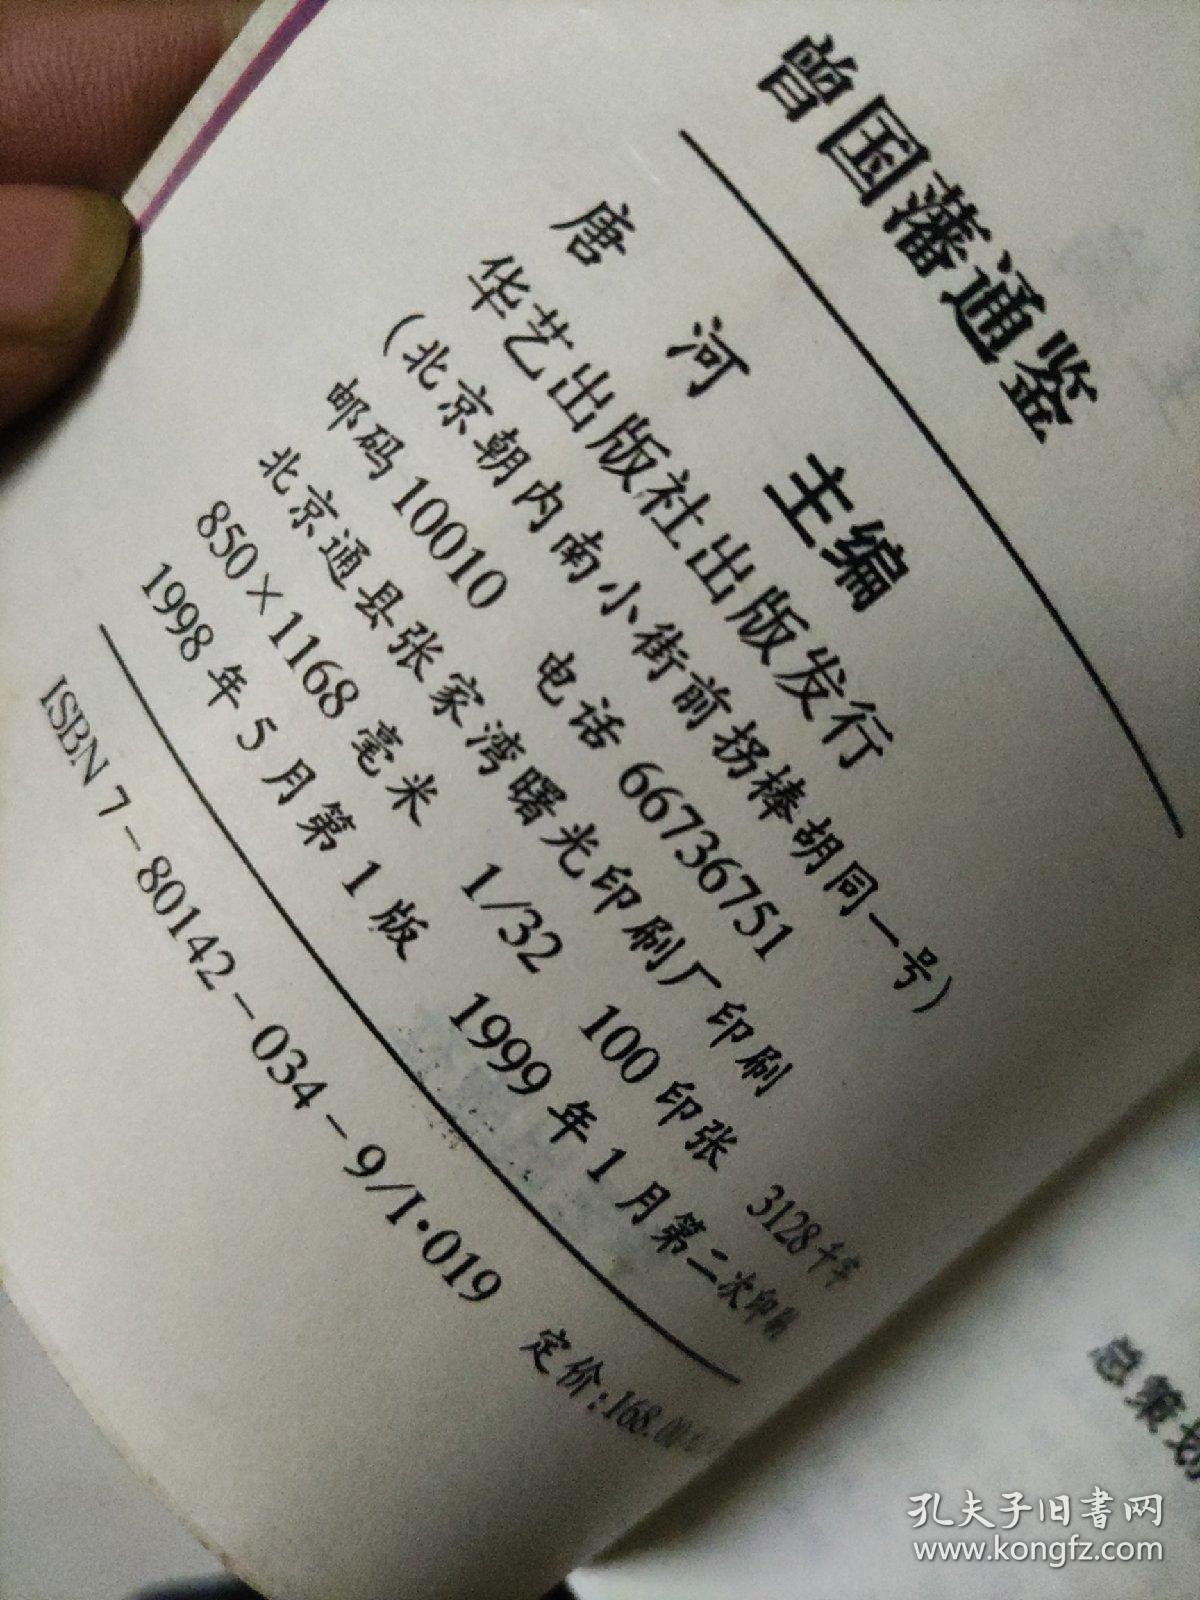 曾国藩通鉴
唐 河 主编
华艺出版社出版发行
(北京朝内南小街前拐棒胡同一号)
邮码 10010 电话 66736751
北京通县张家湾曙光印刷厂印刷
850×1168 毫米 1/32 100 印张 3128 千字
1998 年 5 月第 1 版 1999 年 1 月第二次印刷
ISBN 7-80142-034-9/I·019 定价:168.00
总策划
孔夫子旧书网
www.kongfz.com